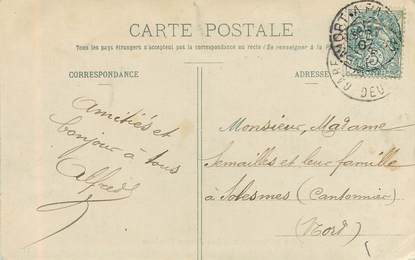 CARTE POSTALE
Tous les pays étrangers n'acceptent pas la correspondance au recto (Se renseigner à la
CORRESPONDANCE
ADRESSE
Amitiés et
bonjour à tous
Alfred
Monsieur, Madame
Semailles et leur famille
à Solesmes (Cantonnier)
(Nord)